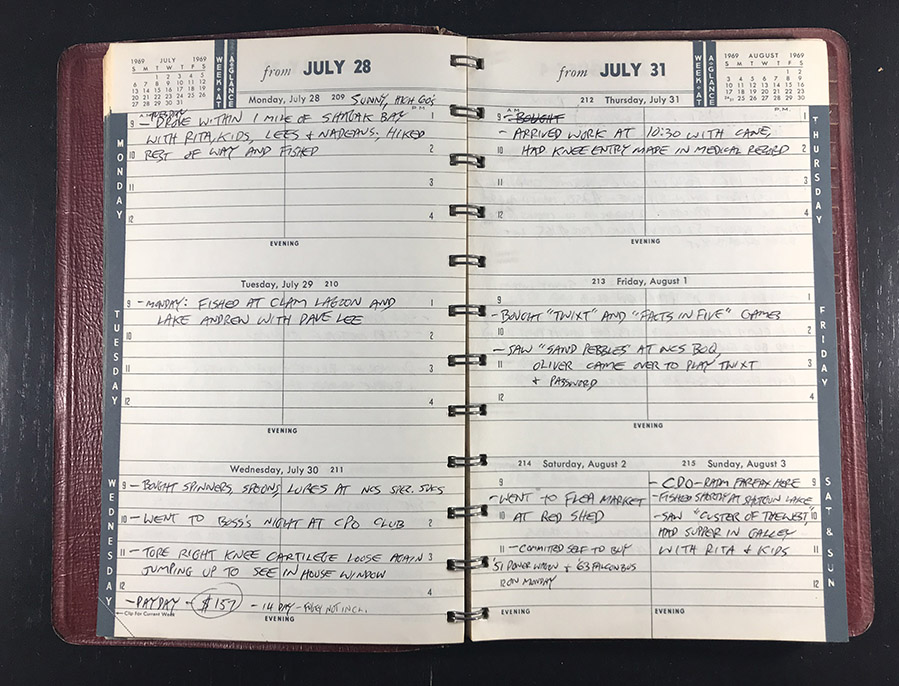 1969 JULY 1969
S M T W T F S
1 2 3 4 5
6 7 8 9 10 11 12
13 14 15 16 17 18 19
20 21 22 23 24 25 26
27 28 29 30 31
WEEK-AT
A-GLANCE
from JULY 28
Monday, July 28 209 SUNNY, HIGH 60's
A.M. P.M.
MONDAY
9 - DROVE WITHIN 1 MILE OF SHAGAK BAY 1
WITH RITA, KIDS, LEES & NADEAUS. HIKED
10 REST OF WAY AND FISHED 2
11 3
12 4
EVENING
Tuesday, July 29 210
TUESDAY
9 - MONDAY: FISHED AT CLAM LAGOON AND 1
LAKE ANDREW WITH DAVE LEE
10 2
11 3
12 4
EVENING
Wednesday, July 30 211
WEDNESDAY
9 - BOUGHT SPINNERS, SPOONS, LURES AT NCS SPEC. SVCS
10 - WENT TO BOSS'S NIGHT AT CPO CLUB 2
11 - TORE RIGHT KNEE CARTILEGE LOOSE AGAIN 3
JUMPING UP TO SEE IN HOUSE WINDOW
12 4
- PAYDAY - $157 - 14 DAY - NOT INCL.
Clip For Current Week
EVENING
from JULY 31
WEEK-AT
A-GLANCE
1969 AUGUST 1969
S M T W T F S
1 2
3 4 5 6 7 8 9
10 11 12 13 14 15 16
17 18 19 20 21 22 23
24/31 25 26 27 28 29 30
212 Thursday, July 31
A.M. P.M.
THURSDAY
9 - BOUGHT 1
- ARRIVED WORK AT 10:30 WITH CANE,
10 HAD KNEE ENTRY MADE IN MEDICAL RECORD 2
11 3
12 4
EVENING
213 Friday, August 1
FRIDAY
9 1
- BOUGHT "TWIXT" AND "FACTS IN FIVE" GAMES
10 2
- SAW "SAND PEBBLES" AT NCS BOQ,
11 OLIVER CAME OVER TO PLAY TWIXT 3
& PASSWORD
12 4
EVENING
214 Saturday, August 2
9
- WENT TO FLEA MARKET
10 AT RED SHED
11 - COMMITTED SELF TO BUY
'51 POWER WAGON & 63 FALCON BUS
12 ON MONDAY
EVENING
215 Sunday, August 3
SAT & SUN
- CDO - RADM FAREAX HERE 9
- FISHED SHORTLY AT SHOTGUN LAKE
- SAW "CUSTER OF THE WEST," 10
HAD SUPPER IN GALLEY
WITH RITA & KIDS 11
12
EVENING